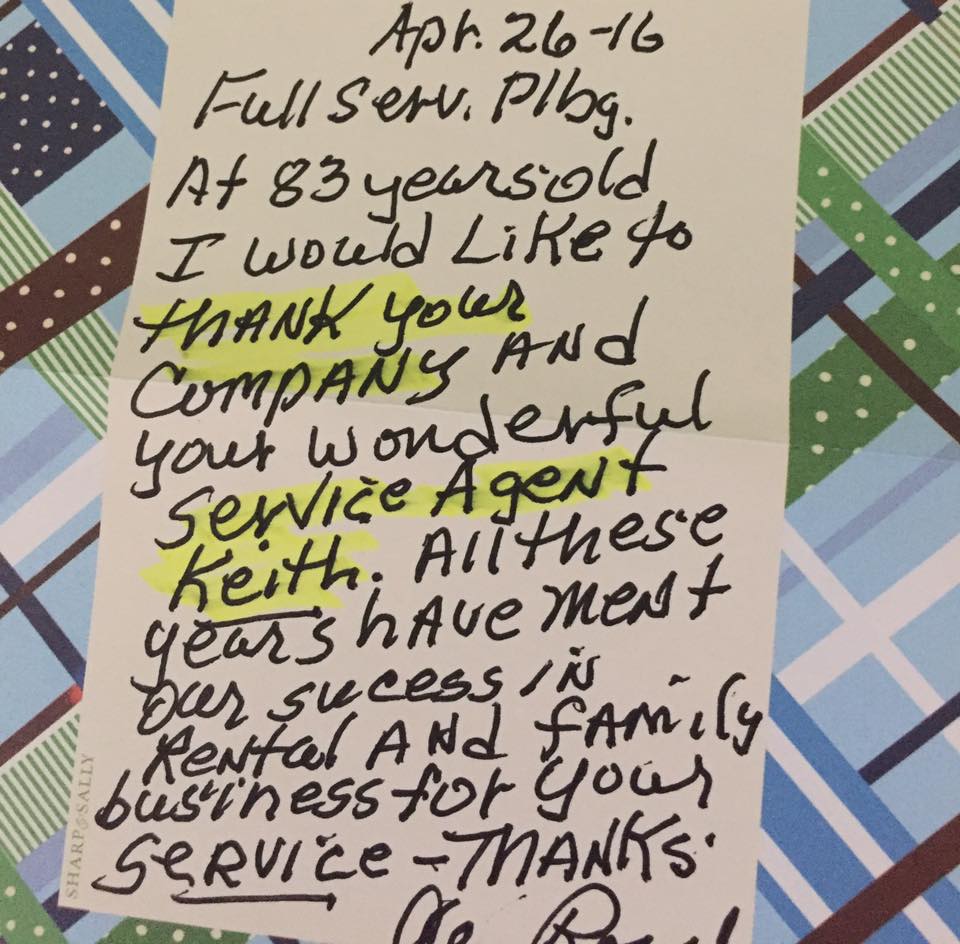 Apr. 26-16
Full Serv. Plbg.
At 83 years old
I would Like to
thANK your
COMPANY AND
your wonderful
Service Agent
Keith. All these
years hAve ment
our sucess iN
Rental ANd fAmily
business for your
SERVice - THANKS.
SHARP & SALLY